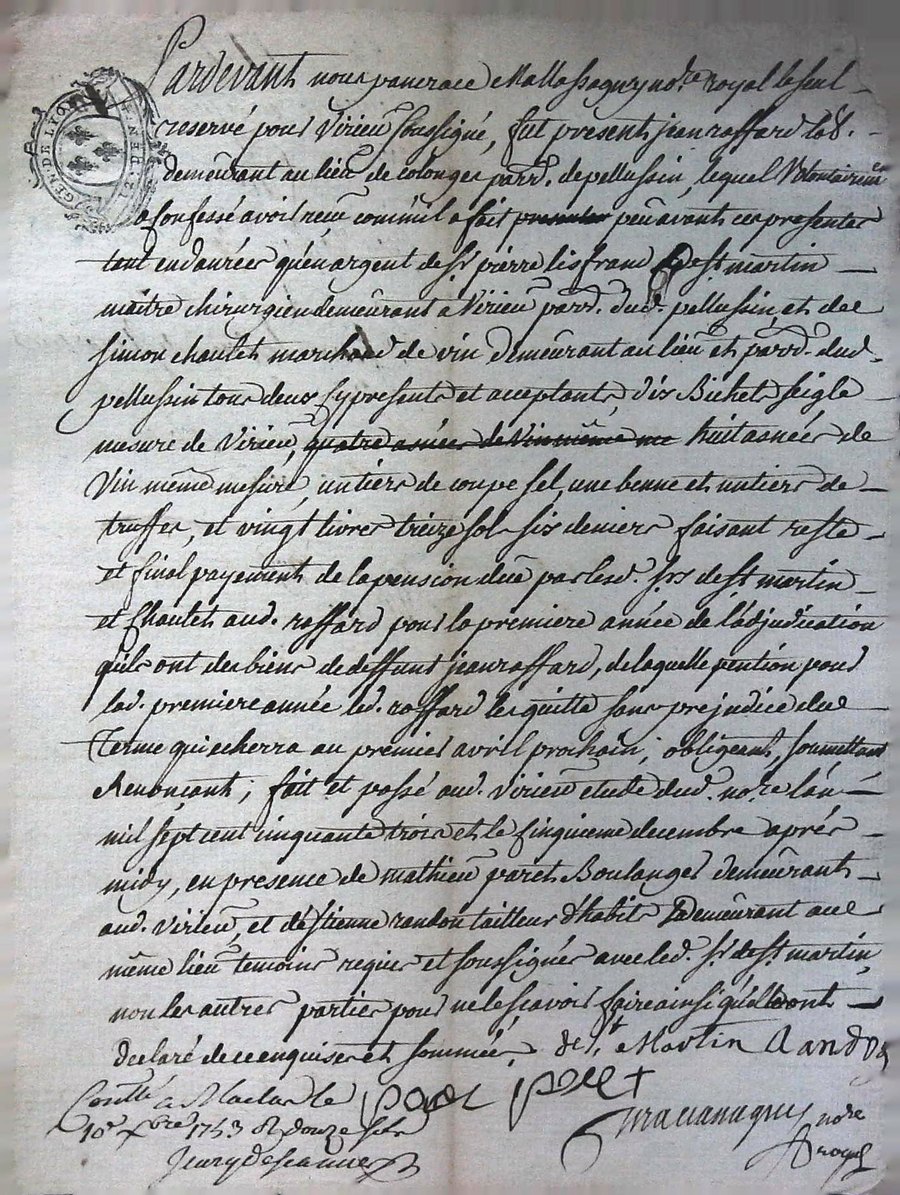 GEN. DE LYON
Pardevant nous pancrace Mallassagny no.re royal le seul
reservé pour Virieu soussigné, fut present jean raffard lab.
demeurant au lieu de colonges parr. de pellussin, lequel Volontairem
a confessé avoir reçu comm'il a fait peu avant ces presentes
tant en danrées qu'en argent de sr pierre lisfranc de st martin
maitre chirurgien demeurant à Virieu parr. dud. pellussin et de
simon chaulet marchand de vin demeurant au lieu et parr. dud.
pellussin tous deux cy presents et acceptants, dix Bichets seigle
mesure de Virieu, quatre anées de Vin même me huit asnées de
Vin même mesure, un tiers de coupe sel, une benne et un tiers de
truffes, et vingt livres treize sols six deniers faisant reste
et final payement de la pension due par lesd. srs de st martin
et Chaulet aud. raffard pour la premiere année de l'adjudication
qu'ils ont des biens de deffunt jean raffard, de laquelle pention pour
lad. premiere année led. raffard les quitte sans prejudice du
terme qui echerra au premier avril prochain; obligeant, soumettant
Renonçant; fait et passé aud. Virieu etude dud. no.re l'an
mil sept cent cinquante trois et le cinquieme decembre aprés
midy, en presence de mathieu paret Boulanger demeurant
aud. Virieu, et d'Estienne randon tailleur d'habits Demeurant au
même lieu temoins requis et soussignés avec led. sr de st martin
non les autres parties pour ne le sçavoir faire ainsi qu'ils ont
declaré de ce enquises et sommées. de st Martin Randon
Contllé a Maclas le paret
10e xbre 1753 R douze sols
Mallassagny no.re
royal